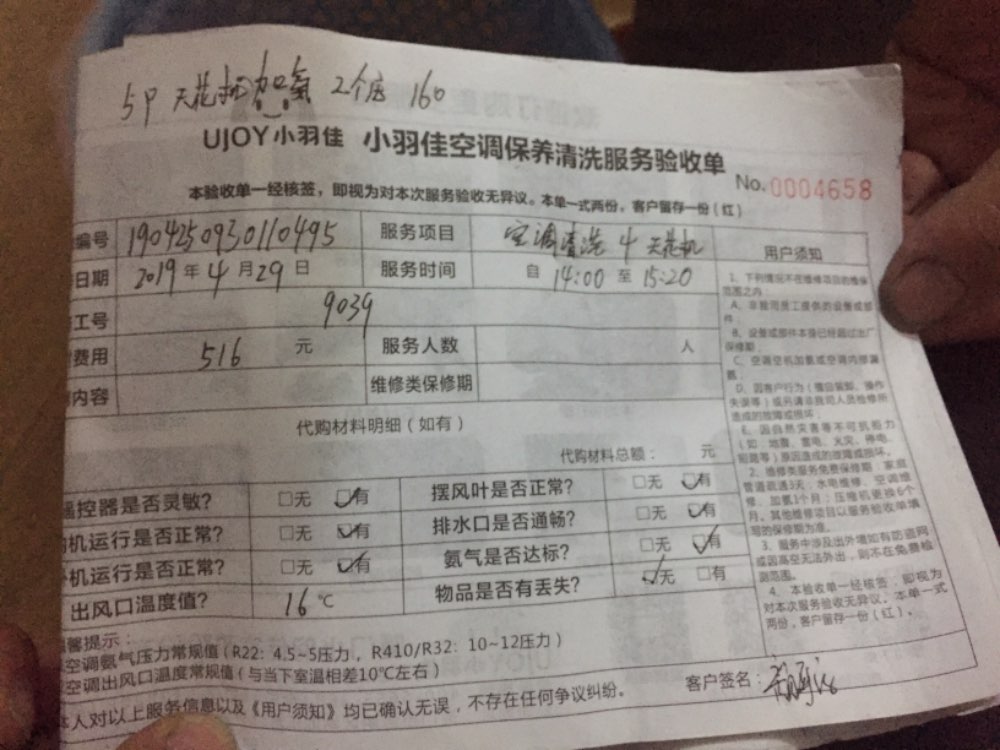 5P 天花机加氨 2个压 160
UJOY小羽佳 小羽佳空调保养清洗服务验收单
No.0004658
本验收单一经核签，即视为对本次服务验收无异议。本单一式两份，客户留存一份（红）
编号 1904250930110495 服务项目 空调清洗 4 天花机
日期 2019年4月29日 服务时间 自 14:00 至 15:20
工号 9039
费用 516 元 服务人数 人
内容 维修类保修期
代购材料明细（如有）
代购材料总额： 元
遥控器是否灵敏？ □无 ☑有 摆风叶是否正常？ □无 ☑有
机运行是否正常？ □无 ☑有 排水口是否通畅？ □无 ☑有
机运行是否正常？ □无 ☑有 氨气是否达标？ □无 ☑有
出风口温度值？ 16℃ 物品是否有丢失？ ☑无 □有
温馨提示：
空调氨气压力常规值（R22：4.5~5压力，R410/R32：10~12压力）
空调出风口温度常规值（与当下室温相差10℃左右）
本人对以上服务信息以及《用户须知》均已确认无误，不存在任何争议纠纷。
客户签名：
用户须知
1、下列情况不在维修项目的维保
范围之内：
A、非我司员工提供的设备或部
件；
B、设备或部件本身已经超过出厂
保修期；
C、空调空机加氨或空调内部漏
氨；
D、因客户行为（擅自装卸、操作
失误等）或另请非我司人员检修所
造成的故障或损坏；
E、因自然灾害等不可抗拒力
（如：地震、雷电、火灾、停电、
短路等）原因造成的故障或损坏。
2、维修类服务免费保修期：家庭
管道疏通3天；水电维修、空调维
修、加氨1个月；压缩机更换6个
月。其他维修项目以服务验收单填
写的保修期为准。
3、服务中涉及出外墙如有防盗网
或因高空无法外出，则不在免费检
测范围。
4、本验收单一经核签，即视为
对本次服务验收无异议。本单一式
两份，客户留存一份（红）。